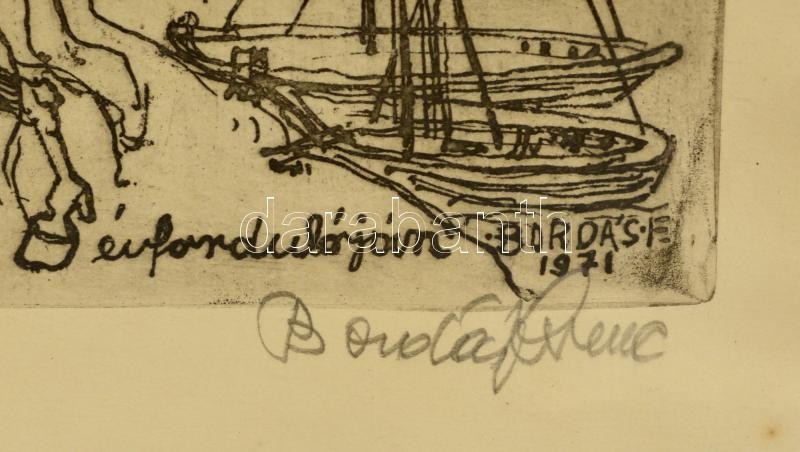 évfordulójára BORDÁS·F
1971
darabanth
Bordás Ferenc